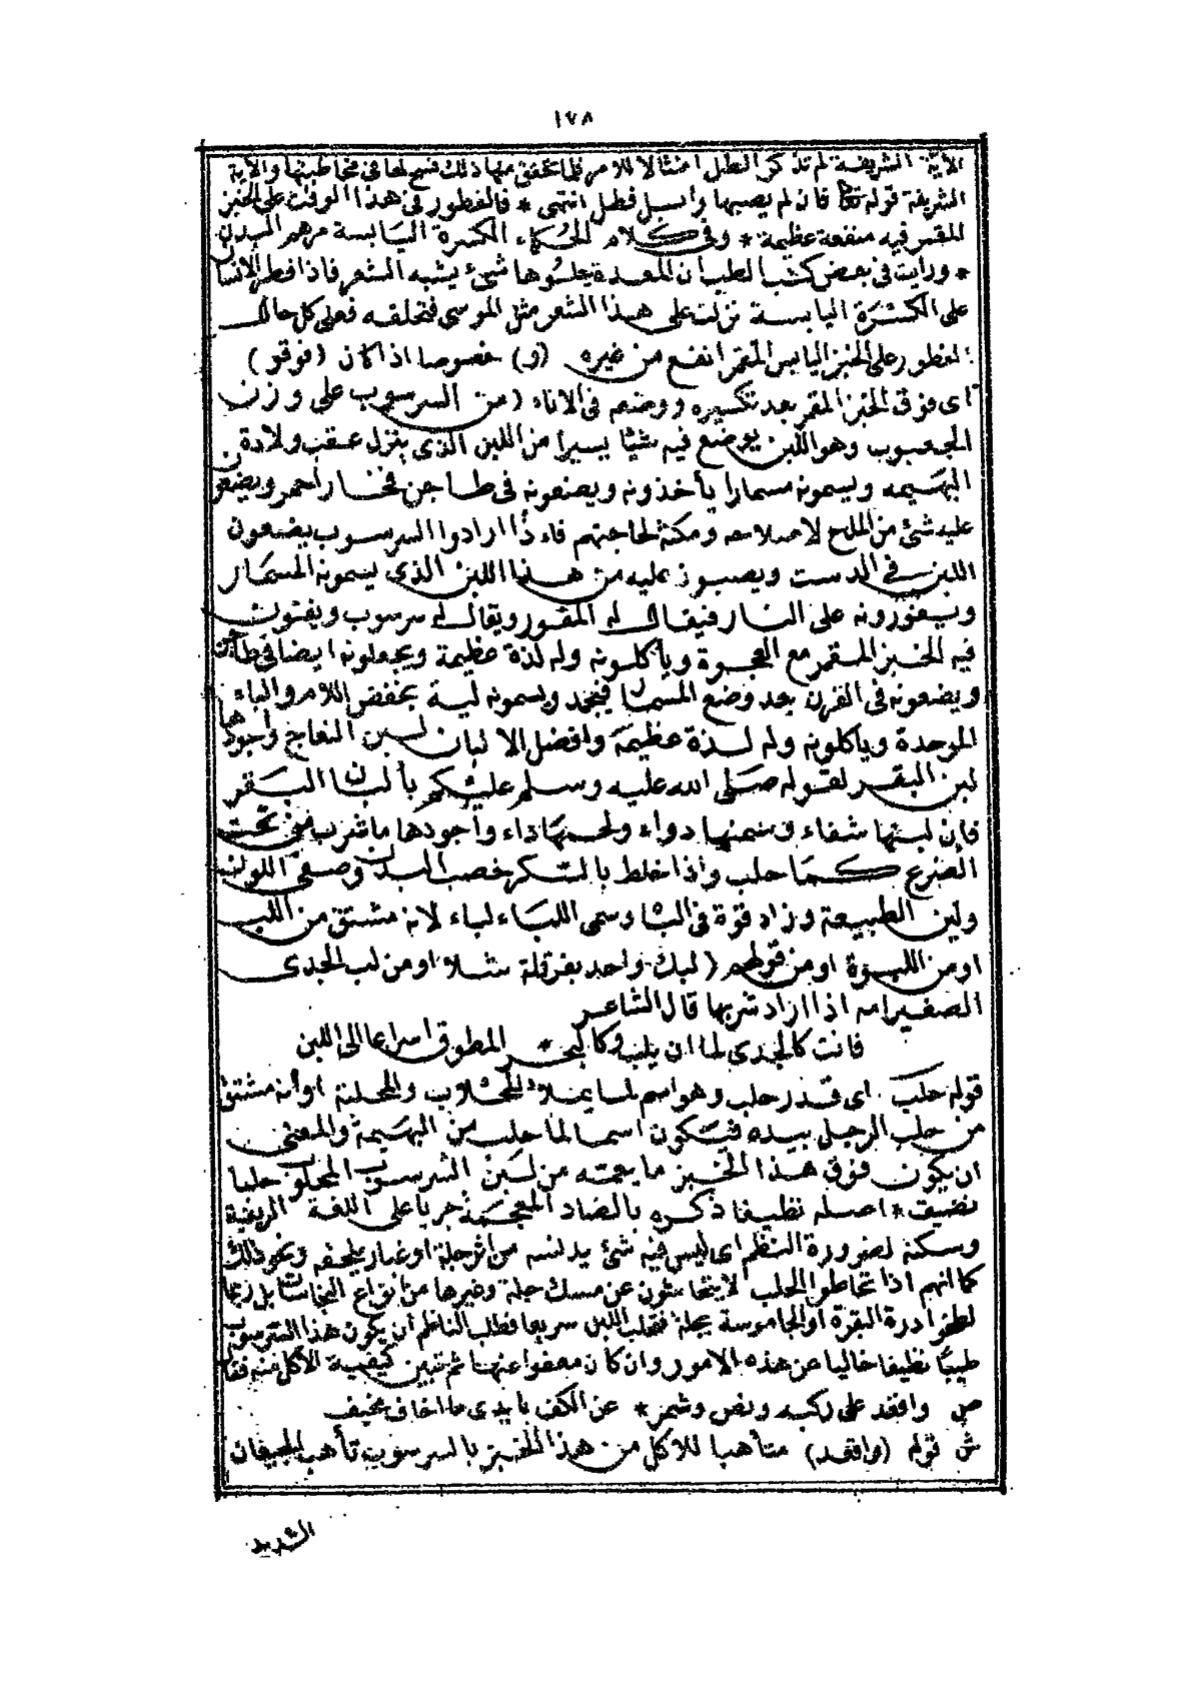 ١٧٨
الآية الشريفة لم تذكر الطل امتثالا للامر فلما تحقق منها ذلك فسح لها فى مخاطبتها والآية
الشريفة قوله تعالى فان لم يصبها وابل فطل انتهى * فالفطور فى هذا الوقت على الخبز
المقمر فيه منفعة عظيمة * وفى كلام الحكماء الكسرة اليابسة مرهم البدن
* ورايت فى بعض كتب الطب ان المعدة يعلوها شئ يشبه الشعر فاذا افطر الانسان
على الكسرة اليابسة نزلت على هذا الشعر مثل الموسى فتحلقه فعلى كل حال
الفطور على الخبز اليابس المقمر انفع من غيره (و) خصوصا اذا كان (فوقو)
اى فوق الخبز المقمر بعد تكسيره ووضعه فى الاناء (من السرسوب على وزن
الجعبوب وهو اللبن يوضع فيه شيئا يسيرا من اللبن الذى ينزل عقب ولادة
البهيمه ويسمونه مسمارا يأخذونه ويصنعونه فى طاجن فخار احمر ويضعون
عليه شئ من الملح لاصلاحه ومكثه لحاجتهم فاذا ارادوا السرسوب يضعون
اللبن فى الدست ويصبون عليه من هذا اللبن الذى يسمونه المسمار
ويفورونه على النار فيقال له المفور ويقال له سرسوب ويفتون
فيه الخبز المقمر مع العجوة ويأكلونه وله لذة عظيمة ويجعلونه ايضا فى طاجن
ويضعونه فى الفرن بعد وضع المسمار فيجمد ويسمونه لبة بخفض اللام والباء
الموحدة وياكلونه وله لذة عظيمة وافضل الالبان لبن النعاج واجودها
لبن البقر لقوله صلى الله عليه وسلم عليكم بألبان البقر
فإن لبنها شفاء وسمنها دواء ولحمها داء وأجودها ما شرب من تحت
الضرع كما حلب واذا خلط بالسكر خصب البدن وصفى اللون
ولين الطبيعة وزاد قوة فى الباه وسمى اللباء لباء لانه مشتق من اللب
او من اللبوة او من قولهم (لبك واحد بفرقلة مثلا او من لب الجدى
الصغير امه اذا اراد شربها قال الشاعر
فانت كالجدى لما ان يلب وكالبحر * المطوق اسراعا الى اللبن
قوله حلب اى قدر حلب وهو اسم لما يملاء المحلاب والمحلبة او أنه مشتق
من حلب الرجل بيده فيكون اسما لما حلب من البهيمة والمعنى
ان يكون فوق هذا الخبز ما يعمه من لبن السرسوب المحلوب حلبا
نضيف * اصله نظيفا ذكره بالضاد المعجمة جريا على اللغة الريفية
وسكنه لضرورة النظم اى ليس فيه شئ يدنسه من اثر جلة او غبار يلحقه ونحو ذلك
كما انهم اذا تعاطوا الحلب لا يتحاشون عن مسك جلة وغيرها من انواع النجاسات بل ربما
لطخوا درة البقرة او الجاموسة بجلة فتحلب اللبن سريعا فطلب الناظم ان يكون هذا السرسوب
طيبا نظيفا خاليا عن هذه الامور وان كان معفوا عنها ثم تبين كيفية الاكل منه فقال
ص واقعد على ركبه ونص وشمر * عن الكف بايدى ما اخاف مخيف
ش قوله (واقعد) متأهبا للاكل من هذا الخبز بالسرسوب تأهب الجيعان
الشديد